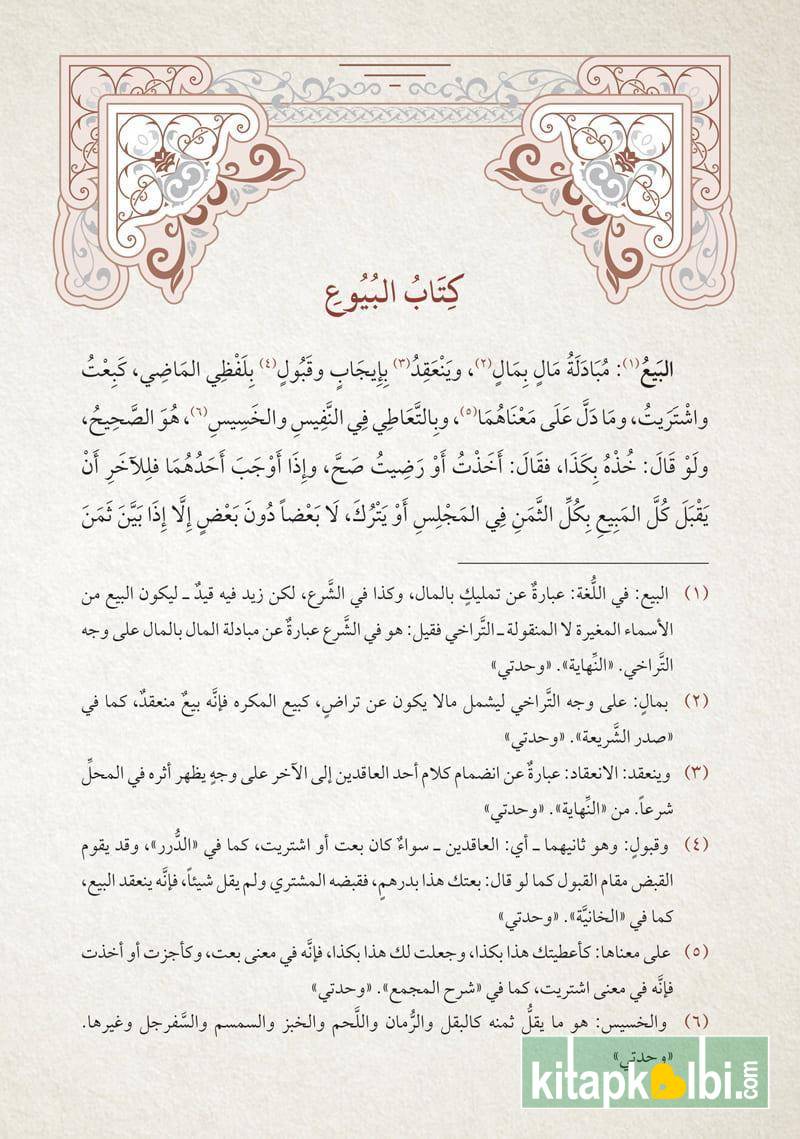 كِتَابُ البُيُوعِ
البَيعُ(١): مُبَادَلَةُ مَالٍ بِمَالٍ(٢)، ويَنْعَقِدُ(٣) بِإِيجَابٍ وقَبُولٍ(٤) بِلَفْظِي المَاضِي، كَبِعْتُ
واشْتَرَيتُ، ومَا دَلَّ عَلَى مَعْنَاهُمَا(٥)، وبِالتَّعَاطِي فِي النَّفِيسِ والخَسِيسِ(٦)، هُوَ الصَّحِيحُ،
ولَوْ قَالَ: خُذْهُ بِكَذَا، فقَالَ: أَخَذْتُ أَوْ رَضِيتُ صَحَّ، وإِذَا أَوْجَبَ أَحَدُهُمَا فلِلآخَرِ أَنْ
يَقْبَلَ كُلَّ المَبِيعِ بِكُلِّ الثَّمَنِ فِي المَجْلِسِ أَوْ يَتْرُكَ، لَا بَعْضاً دُونَ بَعْضٍ إِلَّا إِذَا بَيَّنَ ثَمَنَ
(١) البيع: في اللُّغة: عبارةٌ عن تمليكٍ بالمال، وكذا في الشَّرع، لكن زيد فيه قيدٌ ـ ليكون البيع من
الأسماء المغيرة لا المنقولة ـ التَّراخي فقيل: هو في الشَّرع عبارةٌ عن مبادلة المال بالمال على وجه
التَّراخي. «النِّهاية». «وحدتي»
(٢) بمالٍ: على وجه التَّراخي ليشمل مالا يكون عن تراضٍ، كبيع المكره فإنَّه بيعٌ منعقدٌ، كما في
«صدر الشَّريعة». «وحدتي»
(٣) وينعقد: الانعقاد: عبارةٌ عن انضمام كلام أحد العاقدين إلى الآخر على وجهٍ يظهر أثره في المحلِّ
شرعاً. من «النِّهاية». «وحدتي»
(٤) وقبولٍ: وهو ثانيهما ـ أي: العاقدين ـ سواءٌ كان بعت أو اشتريت، كما في «الدُّرر»، وقد يقوم
القبض مقام القبول كما لو قال: بعتك هذا بدرهمٍ، فقبضه المشتري ولم يقل شيئاً، فإنَّه ينعقد البيع،
كما في «الخانيَّة». «وحدتي»
(٥) على معناها: كأعطيتك هذا بكذا، وجعلت لك هذا بكذا، فإنَّه في معنى بعت، وكأجزت أو أخذت
فإنَّه في معنى اشتريت، كما في «شرح المجمع». «وحدتي»
(٦) والخسيس: هو ما يقلُّ ثمنه كالبقل والرُّمان واللَّحم والخبز والسمسم والسَّفرجل وغيرها.
«وحدتي»
kitapkalbi.com